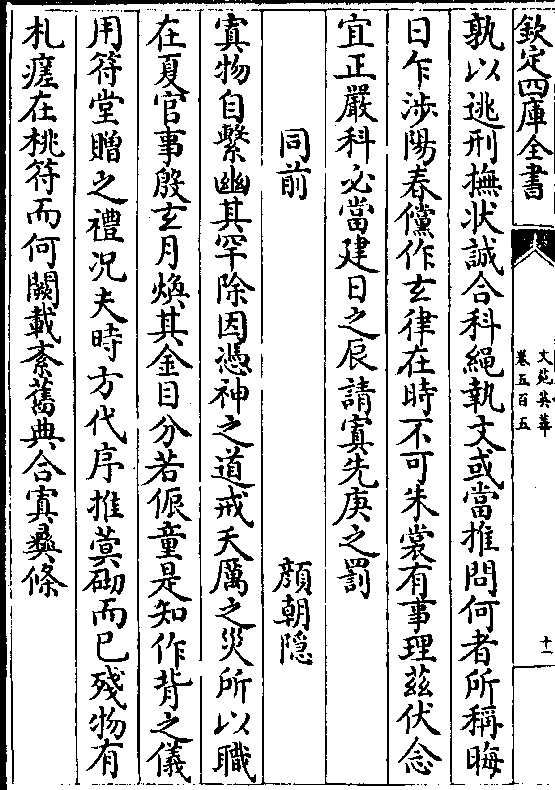 欽定四庫全書
文苑英華
卷五百五
十一
孰以逃刑撫狀誠合科繩執文或當推問何者所稱晦
日乍涉陽春儻作玄律在時不可朱裳有事理茲伏念
宜正嚴科必當建日之辰請寘先庚之罰
同前
顔朝隠
寘物自繫幽其罕除因憑神之道戒天厲之災所以職
在夏官事殷玄月煥其金目分若侲童是知作背之儀
用符堂贈之禮況夫時方代序推蓂砌而已殘物有
札瘥在桃符而何闕載紊舊典合寘彞條